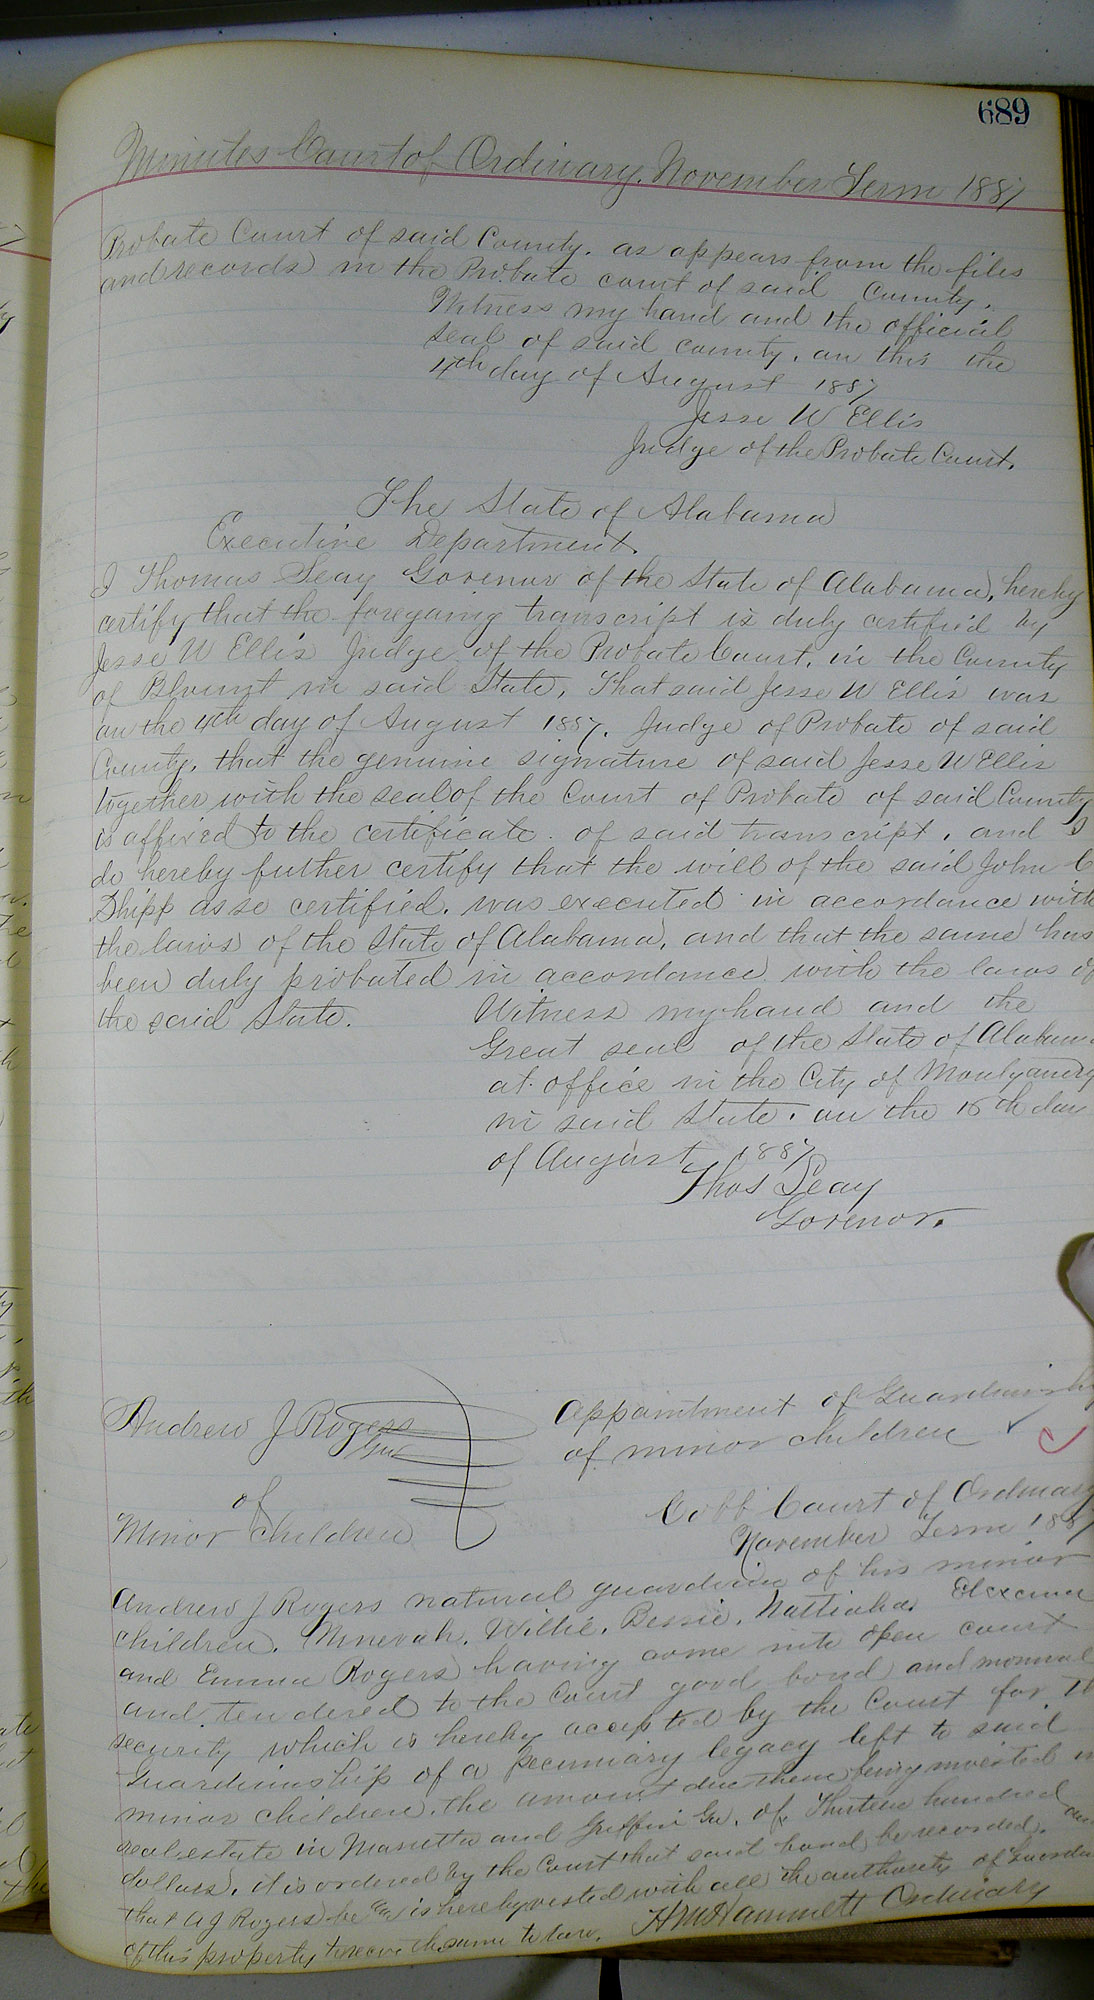 689
Minutes Court of Ordinary, November Term 1887
Probate Court of said County. as appears from the files
and records in the Probate court of said County.
Witness my hand and the official
seal of said county. on this the
4th day of August 1887
Jesse W Ellis
Judge of the Probate Court.
The State of Alabama
Executive Department.
I Thomas Seay Govenor of the State of Alabama, hereby
certify that the foregoing transcript is duly certified by
Jesse W Ellis Judge of the Probate Court, in the County
of Blount in said State, That said Jesse W Ellis was
on the 4th day of August 1887, Judge of Probate of said
County, that the genuine signature of said Jesse W Ellis
together with the seal of the Court of Probate of said County
is affixed to the certificate of said transcript, and I
do hereby futher certify that the will of the said John C
Dhipp as so certified, was executed in accordance with
the laws of the State of Alabama, and that the same has
been duly probated in accordance with the laws of
the said State.
Witness my hand and the
Great seal of the State of Alabama
at office in the City of Montgomery
in said State, on the 16th day
of August 1887
Thos Seay
Govenor.
Andrew J Rogers
Gdn
of
Minor Children
Appointment of Guardianship
of minor children
Cobb Court of Ordinary
November Term 1887
Andrew J Rogers natural guardian of his minor
children, Minevah, Willie, Bessie,
and Emma Rogers having come into open court
and tendered to the Court good bond and
security which is hereby accepted by the Court for the
Guardianship of a pecuniary legacy left to said
minor children, the amount due them being invested in
real estate in Marietta and Griffin Ga. of Thirteen hundred
dollars, it is ordered by the Court that said bond be recorded, and
that A J Rogers be &c is hereby vested with all the authority of Guardian
of this property to receive the same to law. H M Hammett Ordinary